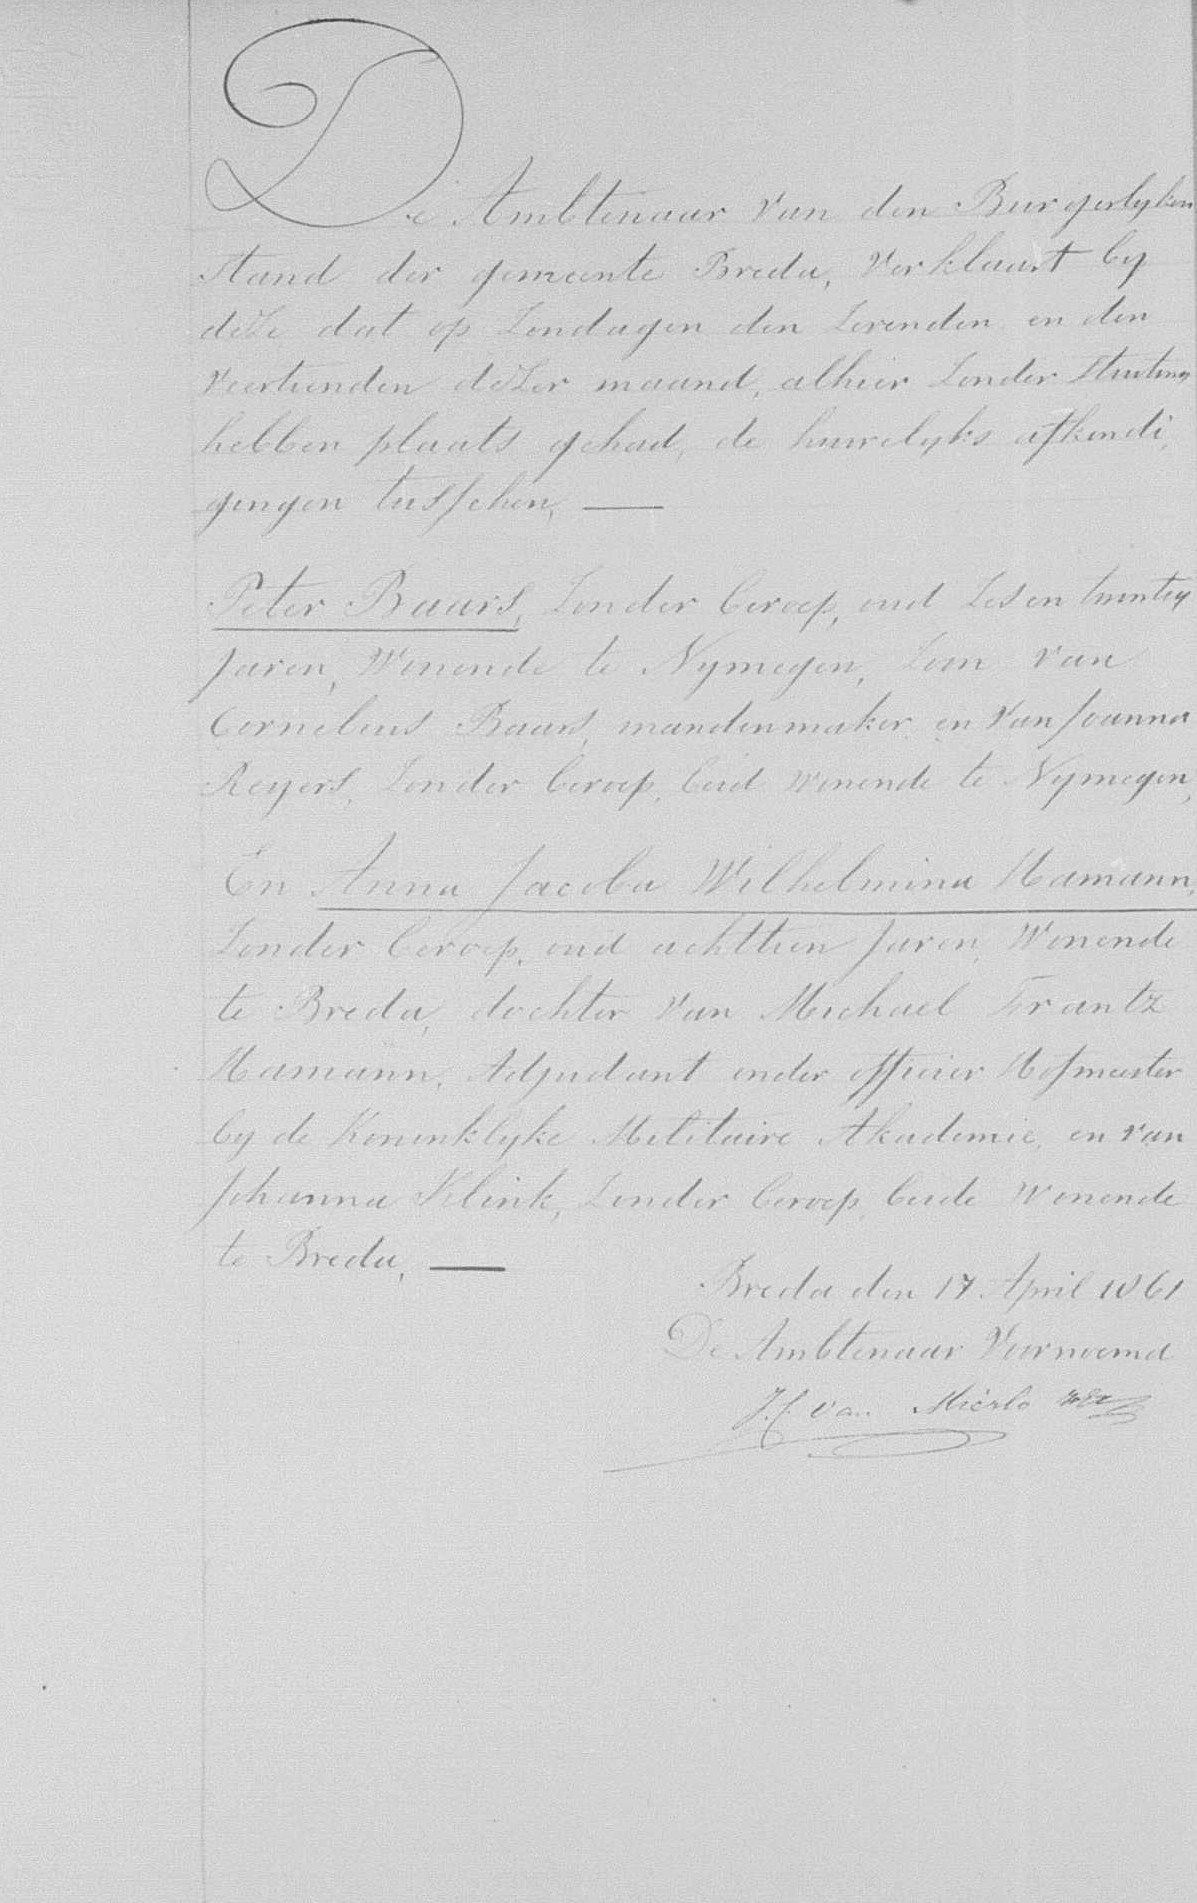 De Ambtenaar van den Burgerlyken
stand der gemeente Breda, verklaart by
deze dat op Zondagen den Zevenden en den
veertienden dezer maand, alhier zonder stuiting
hebben plaats gehad, de huwelyks afkondi,
gingen tusschen, —
Peter Baars, zonder beroep, oud zes en twintig
jaren, wonende te Nymegen, zoon van
Cornelius Baars, mandenmaker en van Joanna
Reyers, zonder beroep, beid wonende te Nymegen,
En Anna Jacoba Wilhelmina Hamann,
zonder beroep, oud achttien jaren, wonende
te Breda, dochter van Michael Frantz
Hamann, Adjudant onder officier Hofmeester
by de Koninklyke Militaire Akademie, en van
Johanna Klink, zonder beroep, beide wonende
te Breda, —
Breda den 17 April 1861
De Ambtenaar Voornoemd
van Mierlo